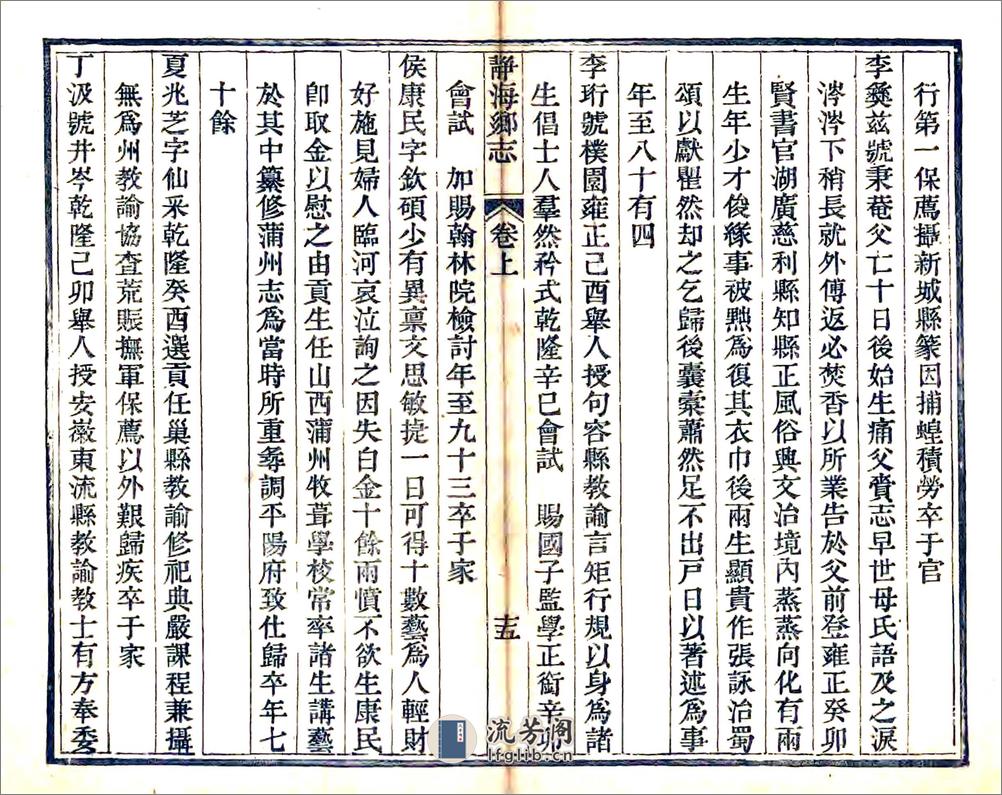 行第一保薦攝新城縣篆因捕蝗積勞卒于官
李㷼茲號秉菴父亡十日後始生痛父賫志早世母氏語及之淚
涔涔下稍長就外傅返必焚香以所業告於父前登雍正癸卯
賢書官湖廣慈利縣知縣正風俗興文治境內蒸蒸向化有兩
生年少才俊緣事被黜爲復其衣巾後兩生顯貴作張詠治蜀
頌以獻瞿然却之乞歸後囊橐蕭然足不出戸日以著述爲事
年至八十有四
李珩號樸園雍正己酉舉人授句容縣教諭言矩行規以身爲諸
生倡士人羣然矜式乾隆辛巳會試 賜國子監學正銜辛卯
靜海鄉志 卷上 十五
會試 加賜翰林院檢討年至九十三卒于家
侯康民字欽碩少有異禀文思敏捷一日可得十數藝爲人輕財
好施見婦人臨河哀泣詢之因失白金十餘兩憤不欲生康民
卽取金以慰之由貢生任山西蒲州牧葺學校常率諸生講藝
於其中纂修蒲州志爲當時所重尋調平陽府致仕歸卒年七
十餘
夏兆芝字仙采乾隆癸酉選貢任巢縣教諭修祀典嚴課程兼攝
無爲州教諭協查荒賑撫軍保薦以外艱歸疾卒于家
丁汲號井岑乾隆己卯舉人授安徽東流縣教諭教士有方奉委
流芳阁
lfglib.cn